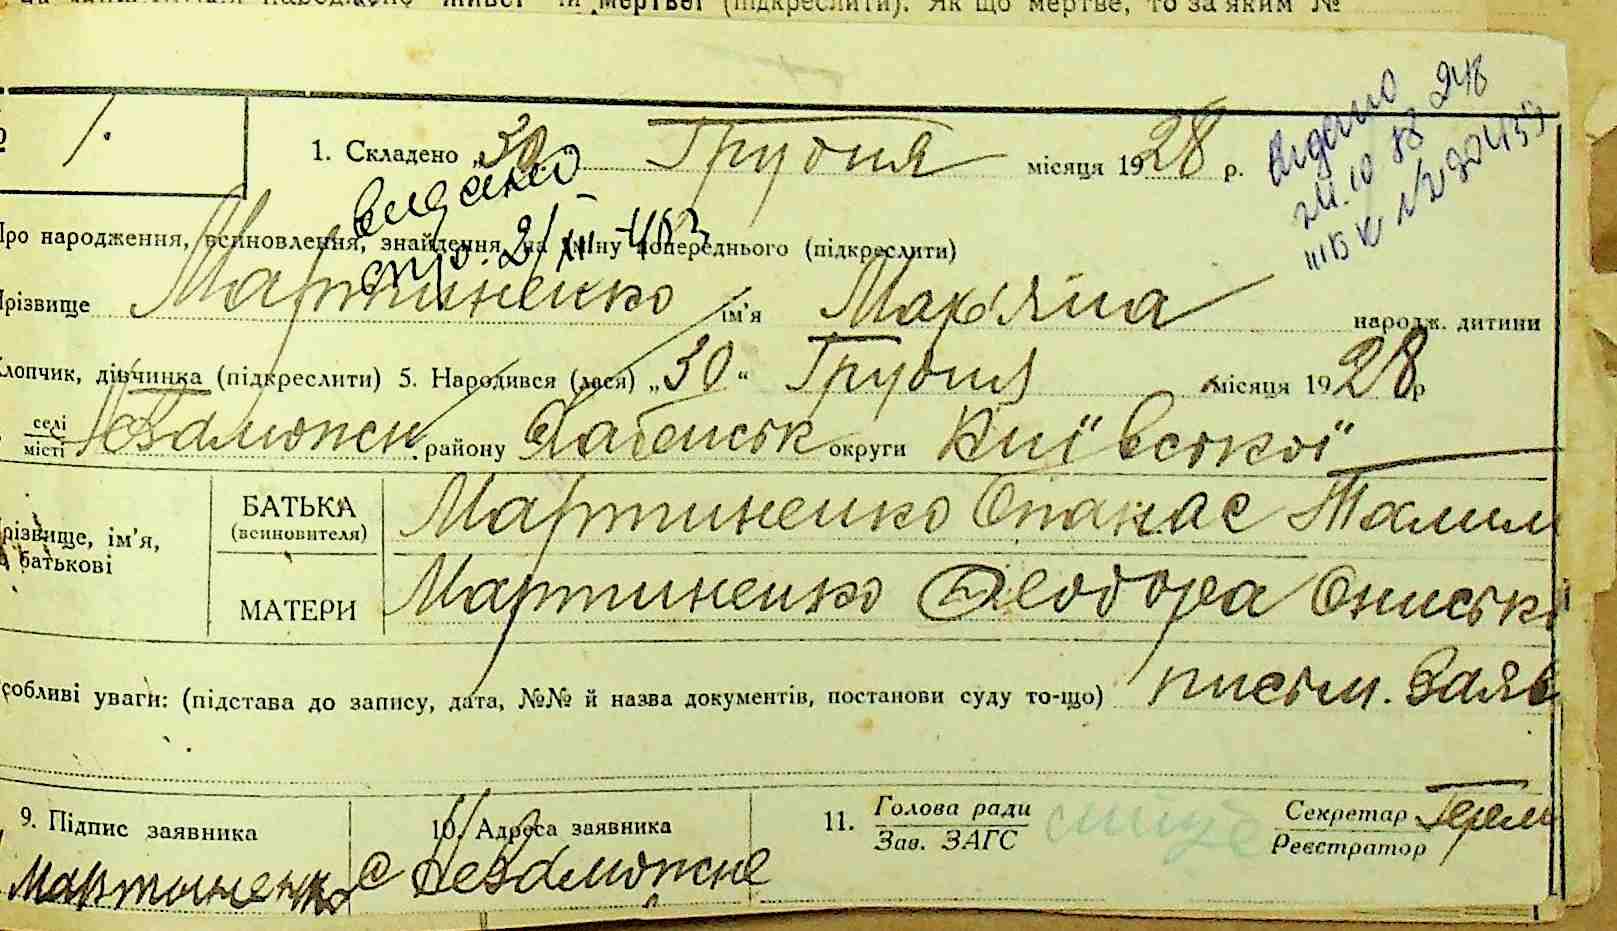 народжено живої чи мертвої (підкреслити). Як що мертве, то за яким №
1.
1. Складено „30" Грудня місяця 1928 р.
Видано
Про народження, всиновлення, знайдення, на зміну попереднього (підкреслити)
Прізвище Мартиненко ім'я Мар'яна народж. дитини
Хлопчик, дівчинка (підкреслити) 5. Народився (лася) „30" Грудня місяця 1928 р
селі
місті Незаможн. району округи Київської
Прізвище, ім'я, по батькові
БАТЬКА (всиновителя) Мартиненко Опанас
МАТЕРИ Мартиненко Теодора
Особливі уваги: (підстава до запису, дата, №№ й назва документів, постанови суду то-що) письм. Заяв
9. Підпис заявника
Мартыненко
10. Адреса заявника
с Незаможне
11. Голова ради
Зав. ЗАГС
Секретар
Реєстратор